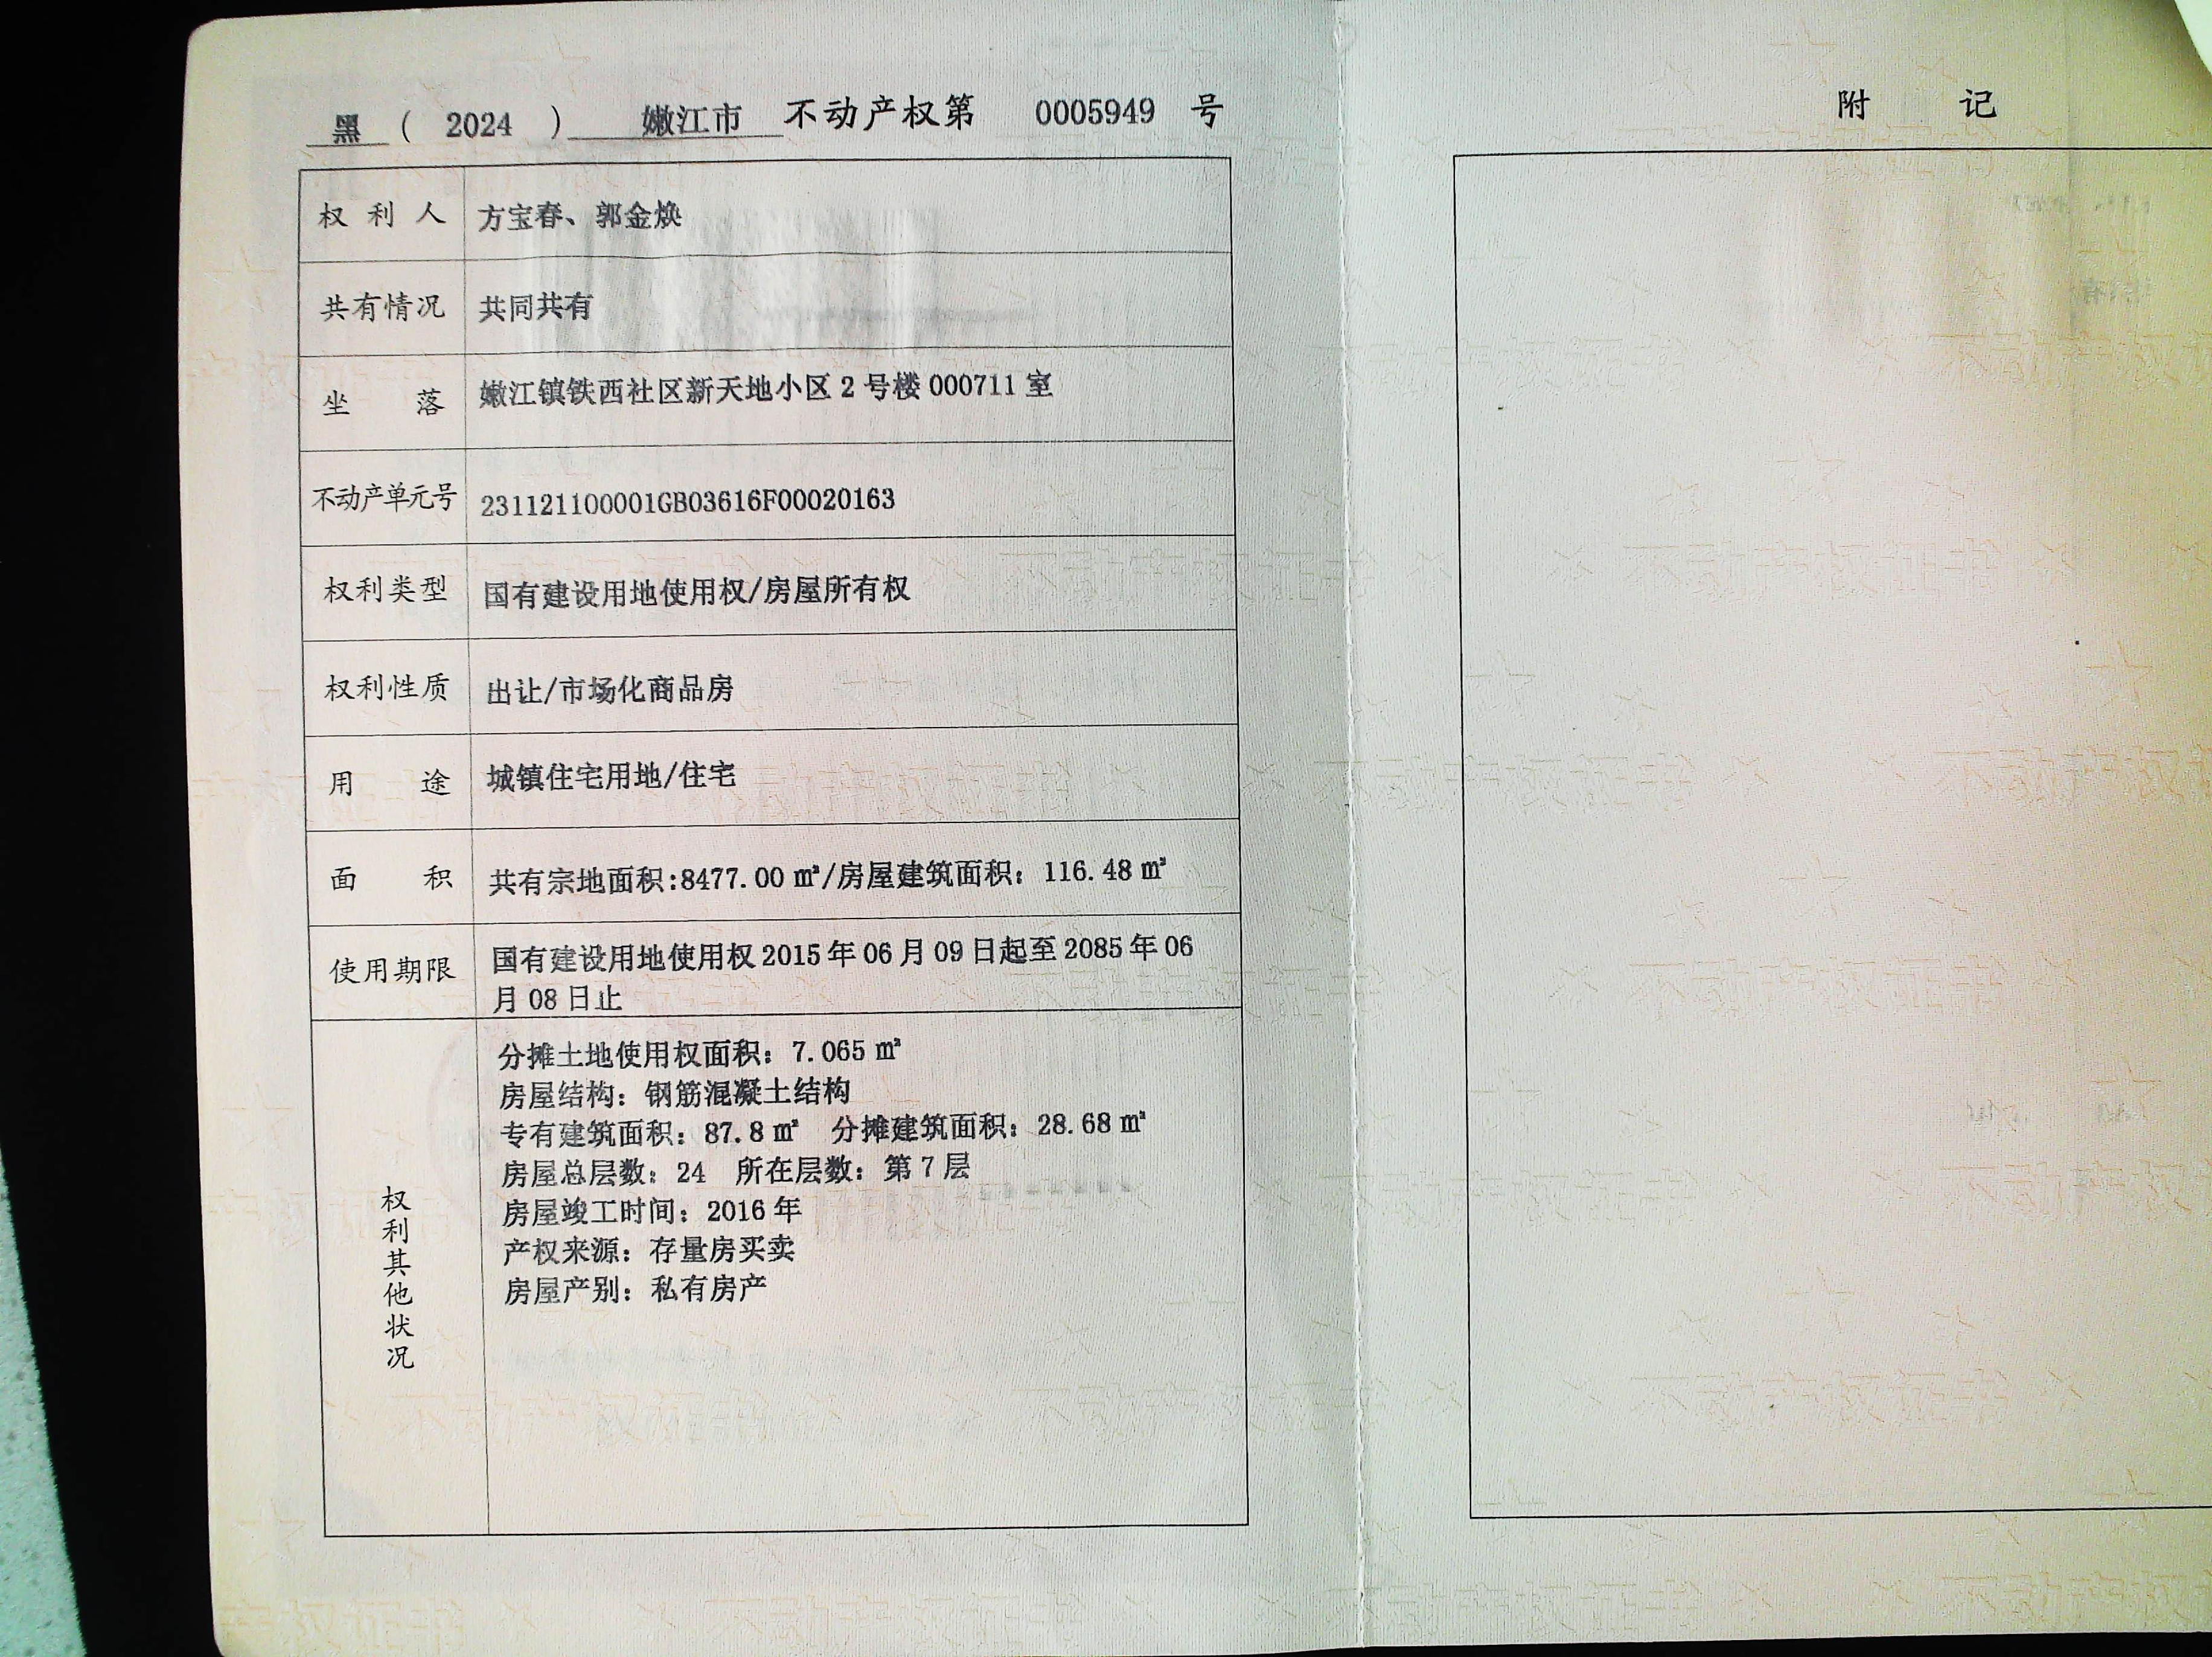 黑 ( 2024 ) 嫩江市 不动产权第 0005949 号
权利人 方宝春、郭金焕
共有情况 共同共有
坐落 嫩江镇铁西社区新天地小区 2 号楼 000711 室
不动产单元号 231121100001GB03616F00020163
权利类型 国有建设用地使用权/房屋所有权
权利性质 出让/市场化商品房
用途 城镇住宅用地/住宅
面积 共有宗地面积:8477.00 ㎡/房屋建筑面积：116.48 ㎡
使用期限 国有建设用地使用权 2015 年 06 月 09 日起至 2085 年 06
月 08 日止
权利其他状况
分摊土地使用权面积：7.065 ㎡
房屋结构：钢筋混凝土结构
专有建筑面积：87.8 ㎡ 分摊建筑面积：28.68 ㎡
房屋总层数：24 所在层数：第 7 层
房屋竣工时间：2016 年
产权来源：存量房买卖
房屋产别：私有房产
附 记